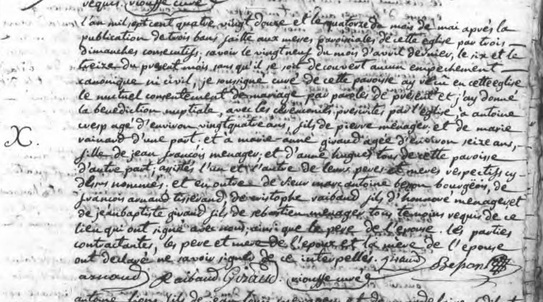 requis. riousse curé
l'an mil sept cent quatre vingt douze et le quatorze du mois de mai après la
publication de trois bans faitte aux messes paroissiales de cette église par trois
dimanches consecutifs, savoir le vingtneuf du mois d'avril dernier, le six et le
treize du present mois sans qu'il se soit decouvert aucun empechement
canonique ni civil, je soussigné curé de cette paroisse ay reçu en cette église
le mutuel consentement de mariage par paroles de présent et j'ay donné
la bénédiction nuptiale, avec les cérémonies prescrites par l'église, à antoine
agé d'environ vingtquatre ans, fils de pierre ménager, et de marie
d'une part, et à marie anne giraud agée d'environ seize ans,
fille de jean françois menager, et d'anne hugues tous de cette paroisse
d'autre part; assistés l'un et l'autre de leurs pere et meres respectifs cy
dessus nommés. et en outre de sieur marc antoine bourgeois, de
françois arnaud tisserand, de cristophe raibaud fils d'honnoré ménager, et
de jeanbaptiste giraud fils de sebastien ménager, tous temoins requis de ce
lieu qui ont signé avec nous, ainsi que le pere de l'epouse. les parties
contractantes, les pere et mere de l'epoux et la mere de l'epouse
ont declaré ne savoir signer de ce interpellés. giraud
arnaud Raibaud Giraud riousse curé
antoine